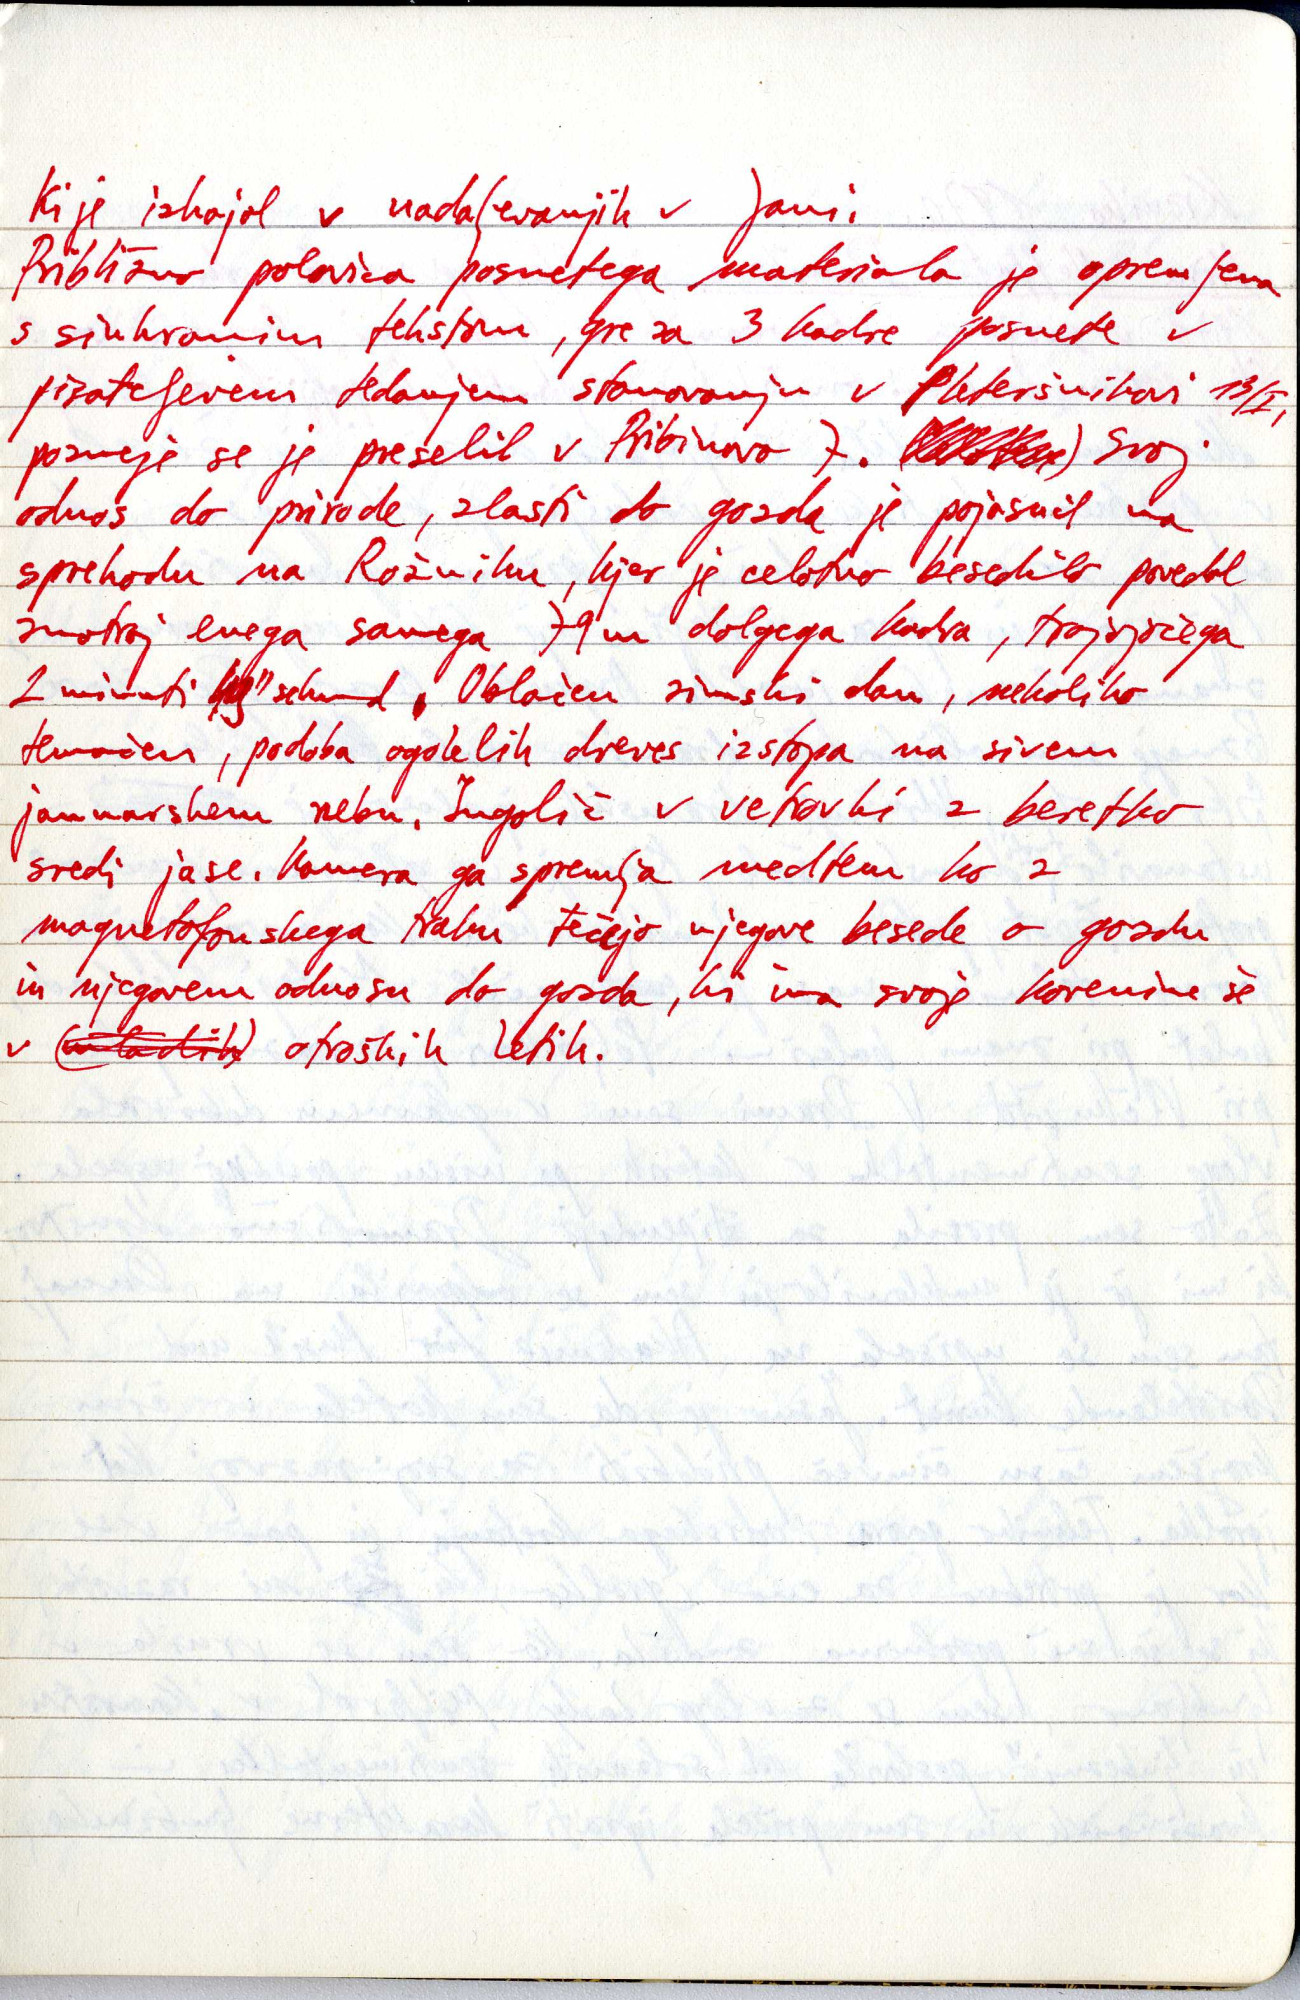 ki je izhajal v nadaljevanjih v Jani.
Približno polovica posnetega materiala je opremljena
s sinhronim tekstom, gre za 3 kadre posnete v
pisateljevem tedanjem stanovanju v Pleteršnikovi 13/I,
pozneje se je preselil v Pribinovo 7. Svoj
odnos do prirode, zlasti do gozda je pojasnil na
sprehodu na Rožniku, kjer je celotno besedilo povedal
znotraj enega samega 79 m dolgega kadra, trajajočega
2 minuti sekund. Oblačen zimski dan, nekoliko
temačen, podoba ogolelih dreves izstopa na sivem
januarskem nebu. Ingolič v vetrovki z beretko
sredi jase. Kamera ga spremlja medtem ko z
magnetofonskega traku tečejo njegove besede o gozdu
in njegovem odnosu do gozda, ki ima svoje korenine še
v (mladih) otroških letih.